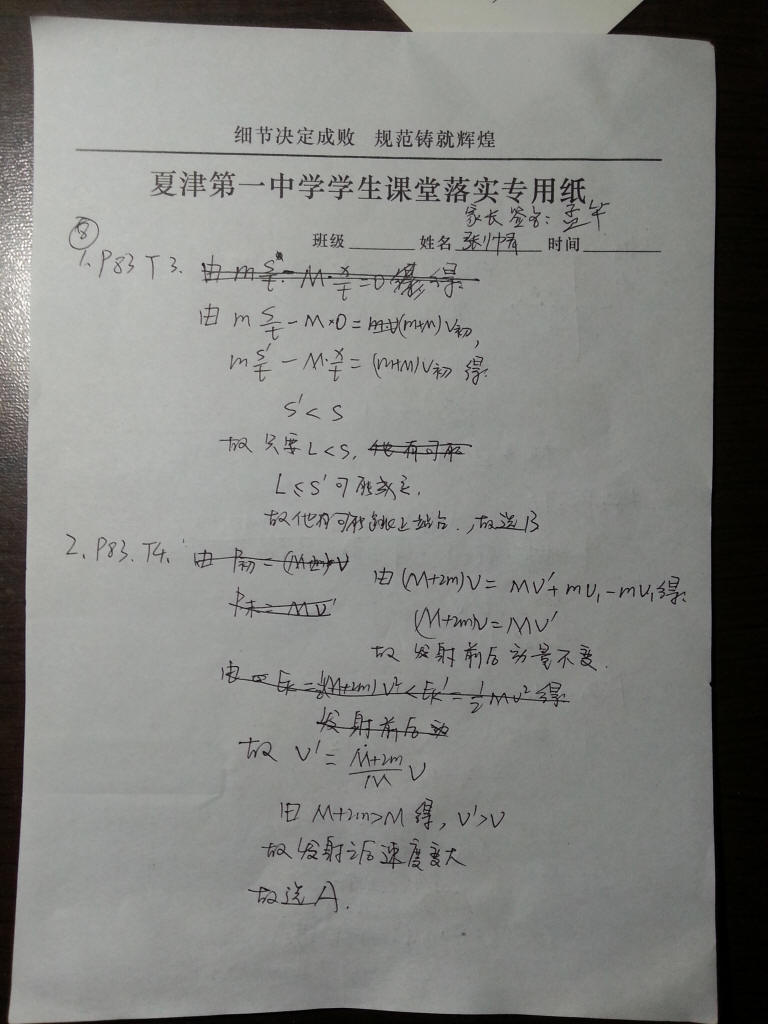 细节决定成败 规范铸就辉煌
夏津第一中学学生课堂落实专用纸
家长签名: 孟华
班级 姓名 张帅 时间
⑧
1. P83 T3. 由 m s/t - M·x/t = 0 得:
由 m s/t - M×0 = (m+M)v初,
m s'/t - M·x/t = (m+M)v初 得:
s' < s
故只要 L<s, 他有可能
L≤s' 可能成立.
故他有可能跳上站台., 故选B
2. P83. T4. 由 P初 = (M+2m)V
P末 = MV'
由 (M+2m)V = MV' + mv₁ - mv₁ 得:
(M+2m)V = MV'
故 发射前后动量不变.
由 Ek = ½(M+2m)V² < Ek' = ½MV² 得
发射前后动
故 V' = (M+2m)/M V
由 M+2m>M 得, V'>V
故发射之后速度变大
故选A.